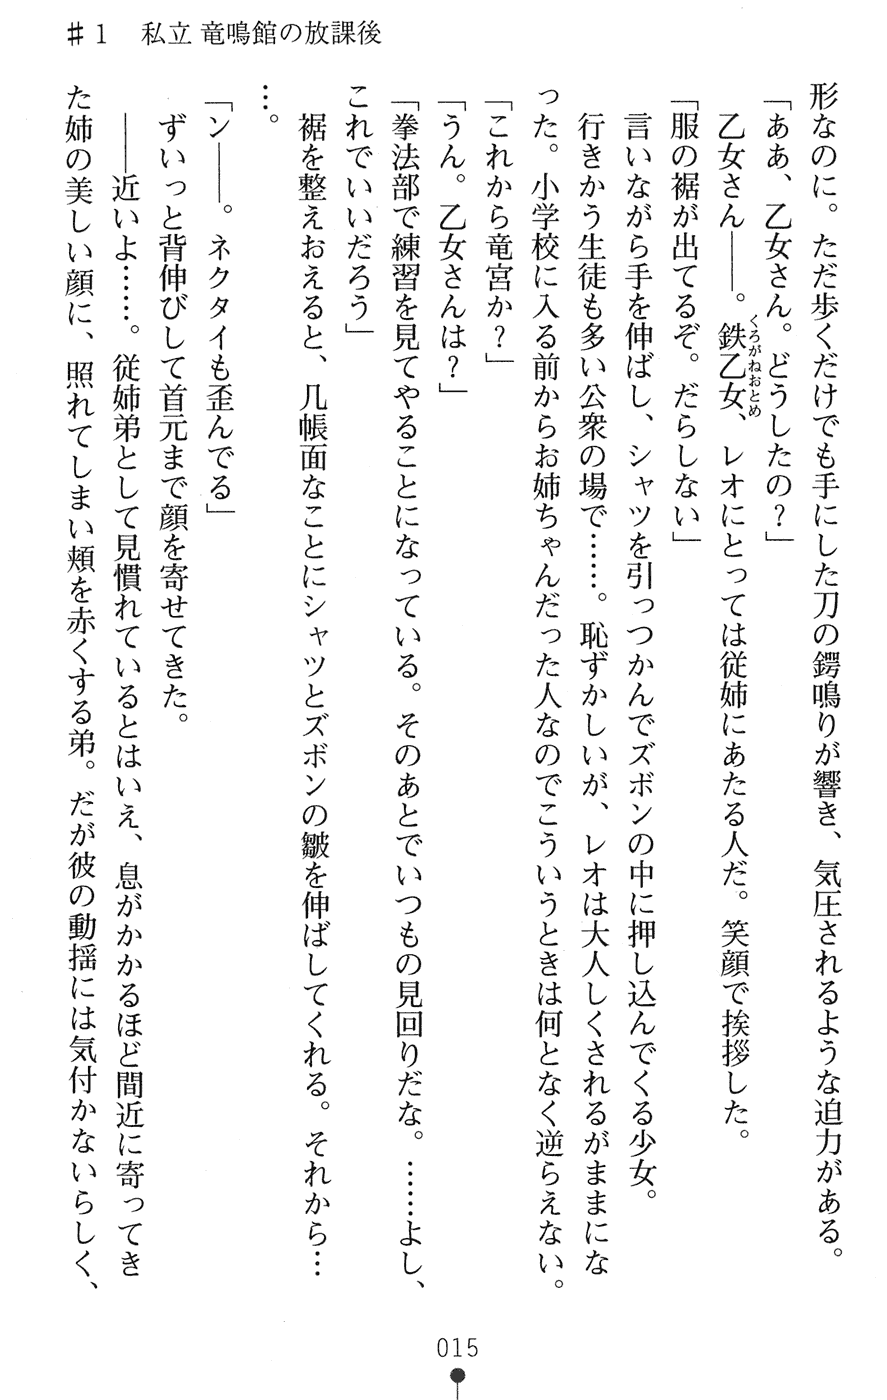 #1　私立 竜鳴館の放課後
形なのに。ただ歩くだけでも手にした刀の鍔鳴りが響き、気圧されるような迫力がある。
「ああ、乙女さん。どうしたの？」
　乙女さん――。鉄乙女、レオにとっては従姉にあたる人だ。笑顔で挨拶した。
くろがねおとめ
「服の裾が出てるぞ。だらしない」
　言いながら手を伸ばし、シャツを引っつかんでズボンの中に押し込んでくる少女。
　行きかう生徒も多い公衆の場で……。恥ずかしいが、レオは大人しくされるがままにな
った。小学校に入る前からお姉ちゃんだった人なのでこういうときは何となく逆らえない。
「これから竜宮か？」
「うん。乙女さんは？」
「拳法部で練習を見てやることになっている。そのあとでいつもの見回りだな。……よし、
これでいいだろう」
　裾を整えおえると、几帳面なことにシャツとズボンの皺を伸ばしてくれる。それから…
…。
「ン――。ネクタイも歪んでる」
　ずいっと背伸びして首元まで顔を寄せてきた。
　――近いよ……。従姉弟として見慣れているとはいえ、息がかかるほど間近に寄ってき
た姉の美しい顔に、照れてしまい頬を赤くする弟。だが彼の動揺には気付かないらしく、
015